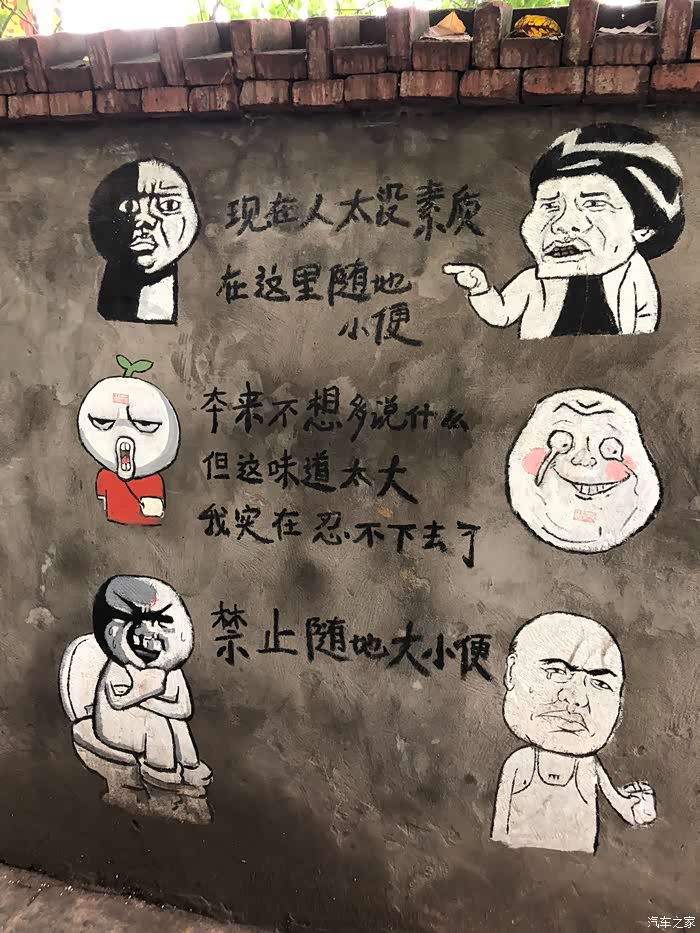 现在人太没素质
在这里随地
小便
本来不想多说什么
但这味道太大
我实在忍不下去了
禁止随地大小便
汽车之家